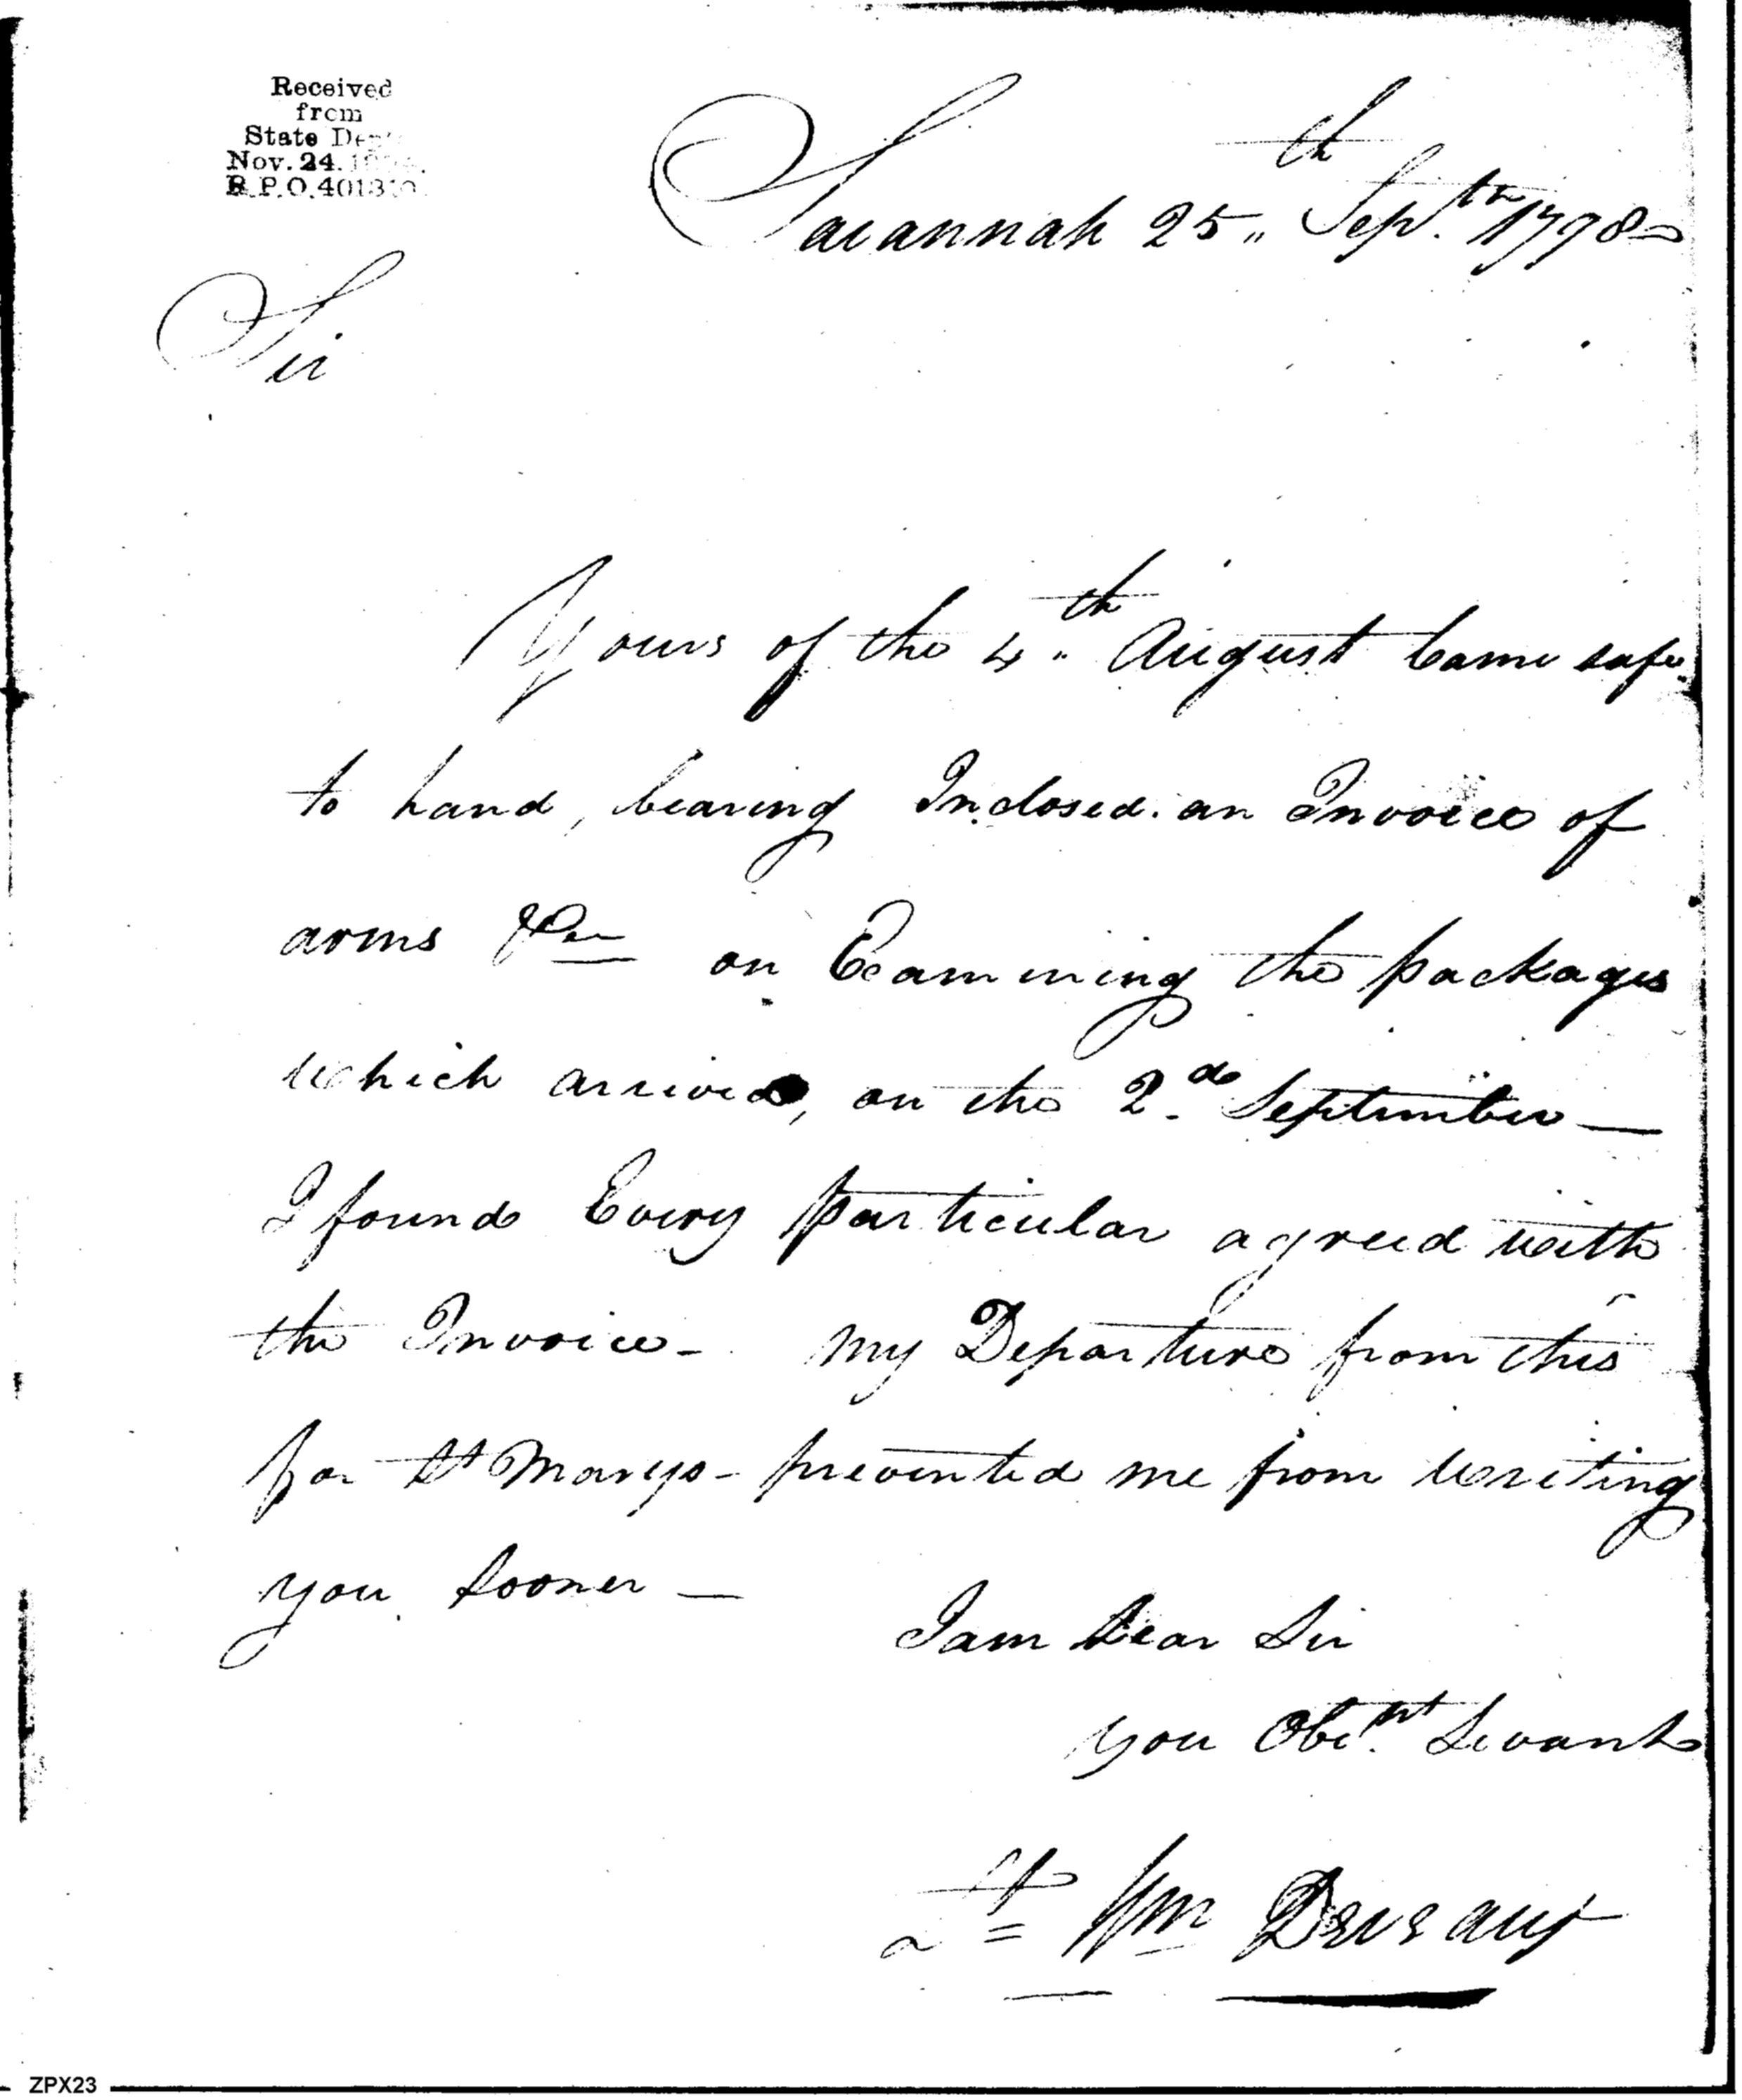 Received
from
State Dept
Nov. 24. 
R.P.O. 4013
Savannah 25th Septr 1798
Sir
Yours of the 4th August Came safe
to hand, bearing Inclosed an Invoice of
arms &ca on Examining the packages
which arrived, on the 2d September —
I found Every particular agreed with
the Invoice - my Departure from this
for St Marys - prevented me from writing
you sooner —
I am Dear Sir
you Obent Servant
Wm
ZPX23